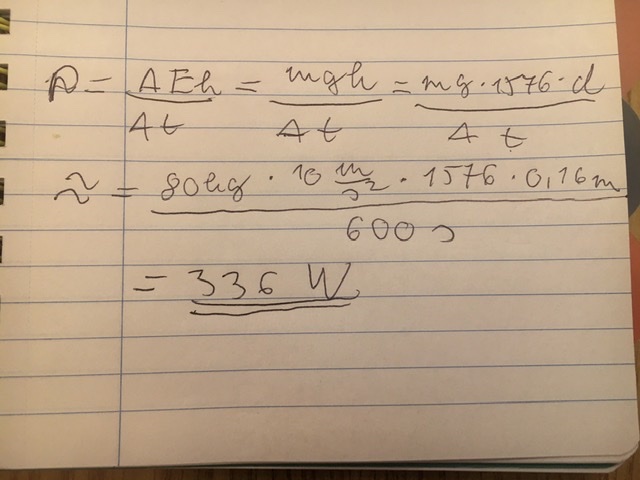 P = ΔEh / Δt = mgh / Δt = mg · 1576 · d / Δt
≈ = 80kg · 10 m/s² · 1576 · 0,16m / 600 s
= 336 W